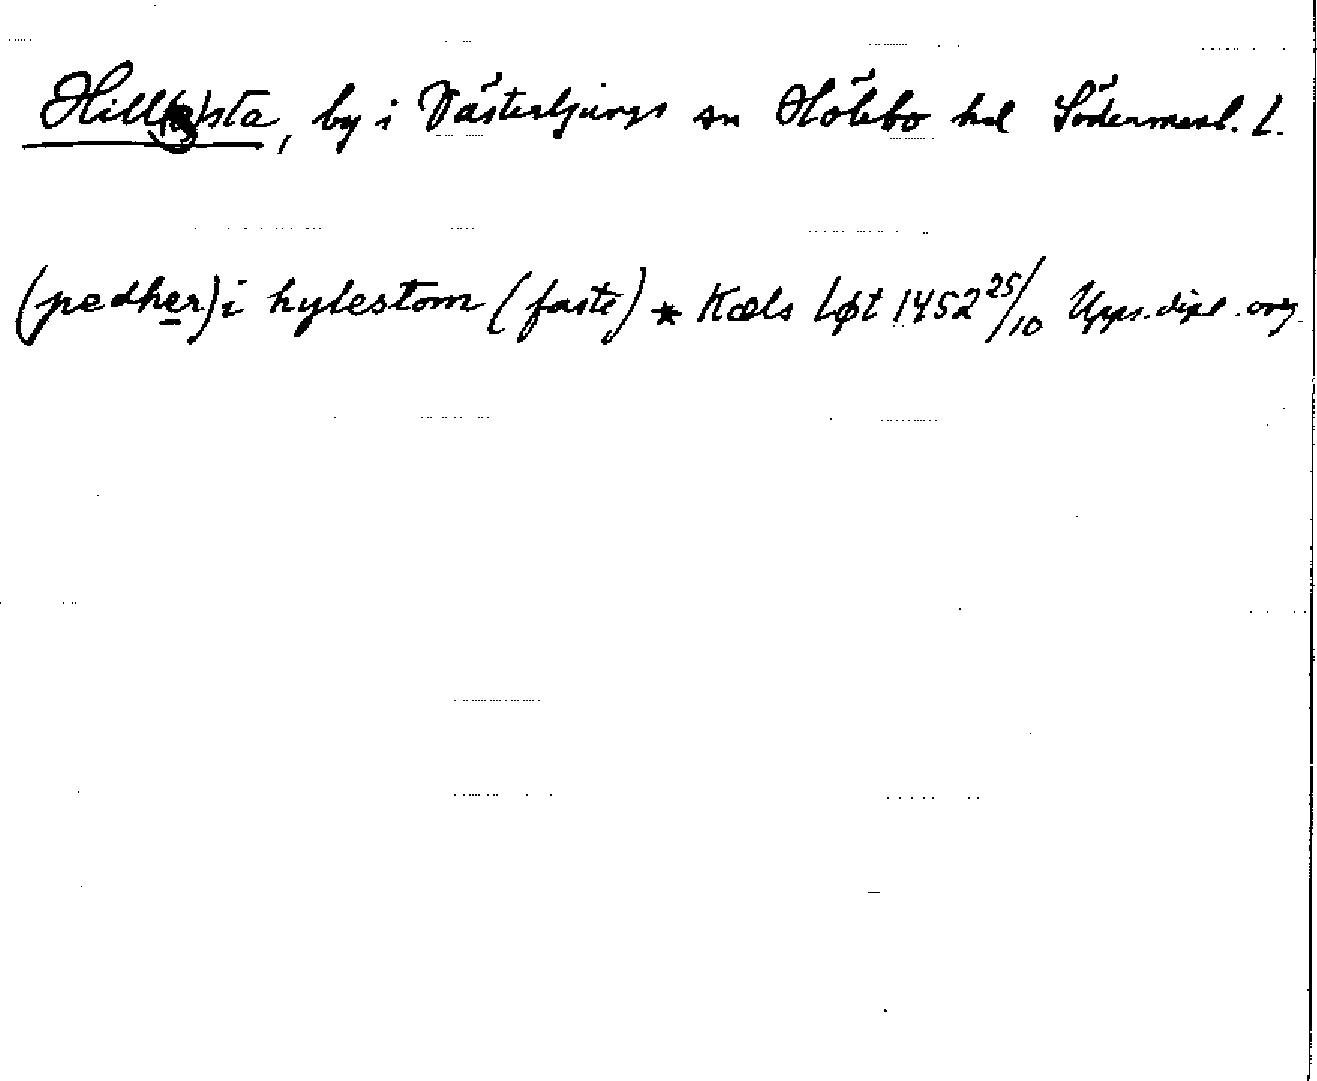 Hill(e)sta, by i Västerljungs sn Hölebo hd Södermanl. L.
(pedher) i hylestom (faste) * Kæls Løt 1452 25/10 Upps. dipl. orig